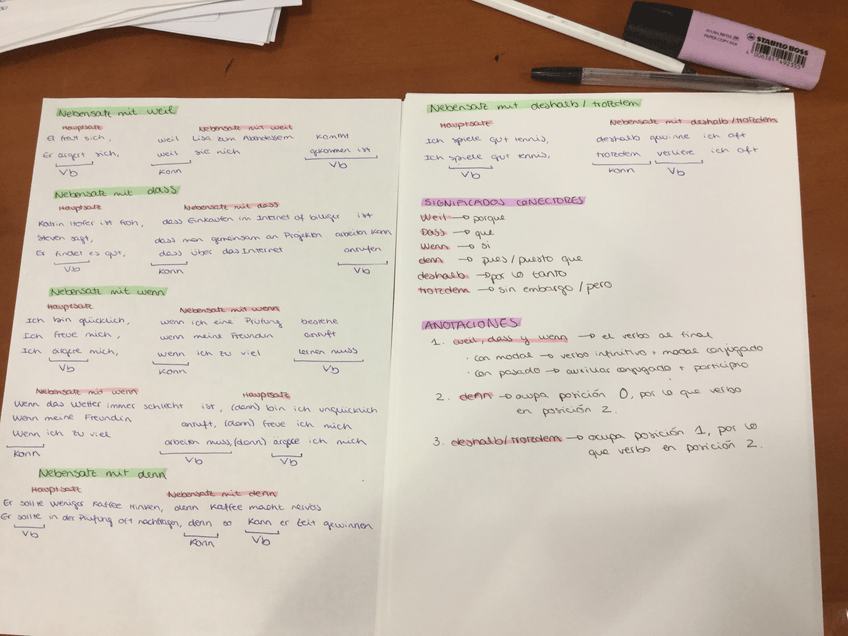 Nebensatz mit weil
Hauptsatz Nebensatz mit weil
El freut sich, weil Lisa zum Abendessem kommt
Er ärgert sich, weil sie nich gekommen ist
Vb Konn Vb
Nebensatz mit dass
Hauptsatz Nebensatz mit dass
Katrin Hofer ist froh, dass Einkaufen im Internet of billiger ist
Steven sagt, dass man gemeinsam an Projekten arbeiten kann
Er findet es gut, dass über das Internet anrufen
Vb Konn Vb
Nebensatz mit wenn
Hauptsatz Nebensatz mit wenn
Ich bin glücklich, wenn ich eine Prüfung bestehe
Ich freue mich, wenn meine Freundin anruft
Ich ärgere mich, wenn ich zu viel lernen muss
Vb Konn Vb
Nebensatz mit wenn Hauptsatz
Wenn das Wetter immer schlecht ist, (dann) bin ich unglücklich
Wenn meine Freundin anruft, (dann) freue ich mich
Wenn ich zu viel arbeiten muss, (dann) ärgere ich mich
Konn Vb Vb
Nebensatz mit denn
Hauptsatz Nebensatz mit denn
Er sollte weniger Kaffee trinken, denn Kaffee macht nervös
Er sollte in der Prüfung oft nachfragen, denn so kann er Zeit gewinnen
Vb Konn Vb
Nebensatz mit deshalb/trotzdem
Hauptsatz Nebensatz mit deshalb/trotzdem
Ich spiele gut tennis, deshalb gewinne ich oft
Ich spiele gut tennis, trotzdem verliere ich oft
Vb Konn Vb
SIGNIFICADOS CONECTORES
Weil → porque
Dass → que
Wenn → si
denn → pues/puesto que
deshalb → por lo tanto
trotzdem → sin embargo/pero
ANOTACIONES
1. weil, dass y wenn → el verbo al final
· con modal → verbo infinitivo + modal conjugado
· con pasado → auxiliar conjugado + participio
2. denn → ocupa posición 0, por lo que verbo
en posición 2.
3. deshalb/trotzdem → ocupa posición 1, por lo
que verbo en posición 2.
STABILO BOSS